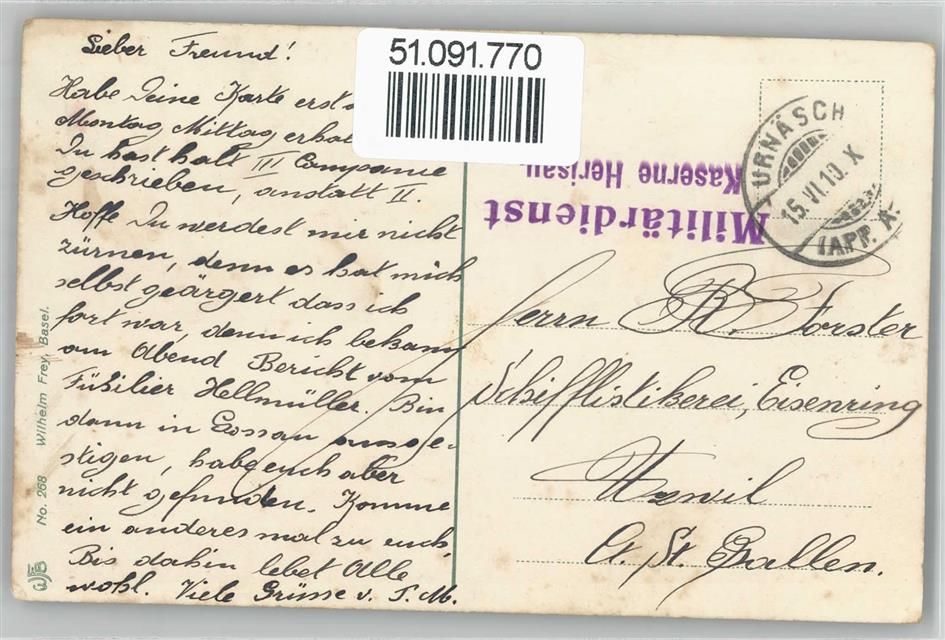 Lieber Freund!
Habe Deine Karte erst
Montag Mittag
Du hast halt III Companie
geschrieben, anstatt II.
Hoffe Du werdest mir nicht
zürnen, denn es hat mich
selbst geärgert dass ich
fort war, denn ich bekam
am Abend Bericht vom
Füsilier Hellmüller. Bin
dann in Gossau ausge-
stigen, habe euch aber
nicht gefunden. Komme
ein anderes mal zu euch,
Bis dahin lebet Alle
wohl. Viele Grüsse v. S. M.
51.091.770
Militärdienst
Kaserne Herisau.
URNÄSCH
15.VI.10.X
(APP. A.
Herrn R. Forster
Schifflistikerei, Eisenring
Uzwil
Ct. St. Gallen.
No. 268 Wilhelm Frey, Basel.
WFB